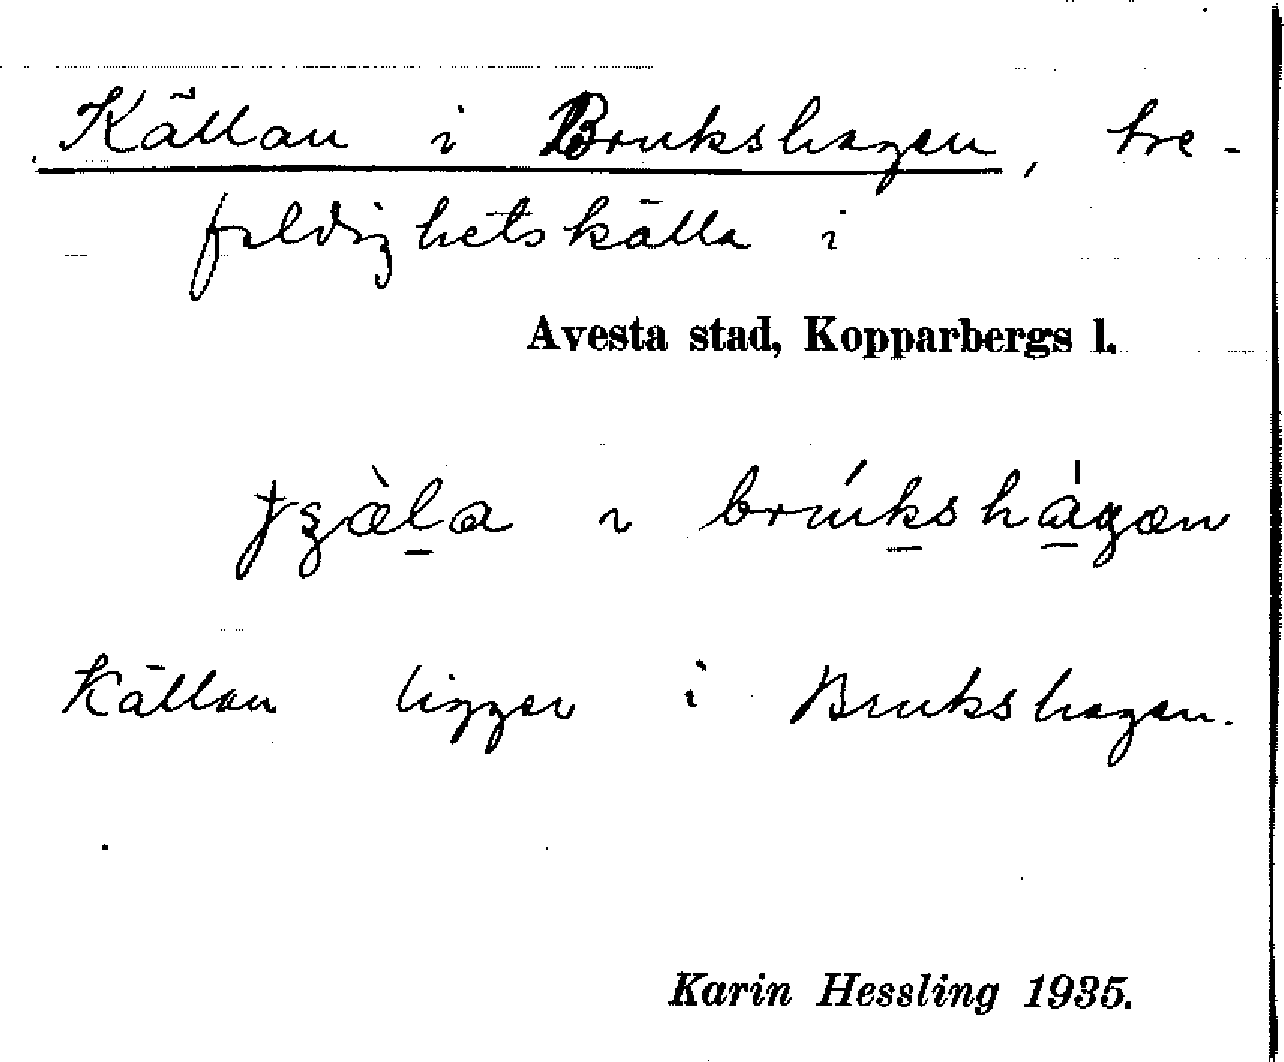 Källan i Brukshagen, tre-
faldighetskälla i
Avesta stad, Kopparbergs l.
i brúkshágæn
Källan ligger i Brukshagen.
Karin Hessling 1935.